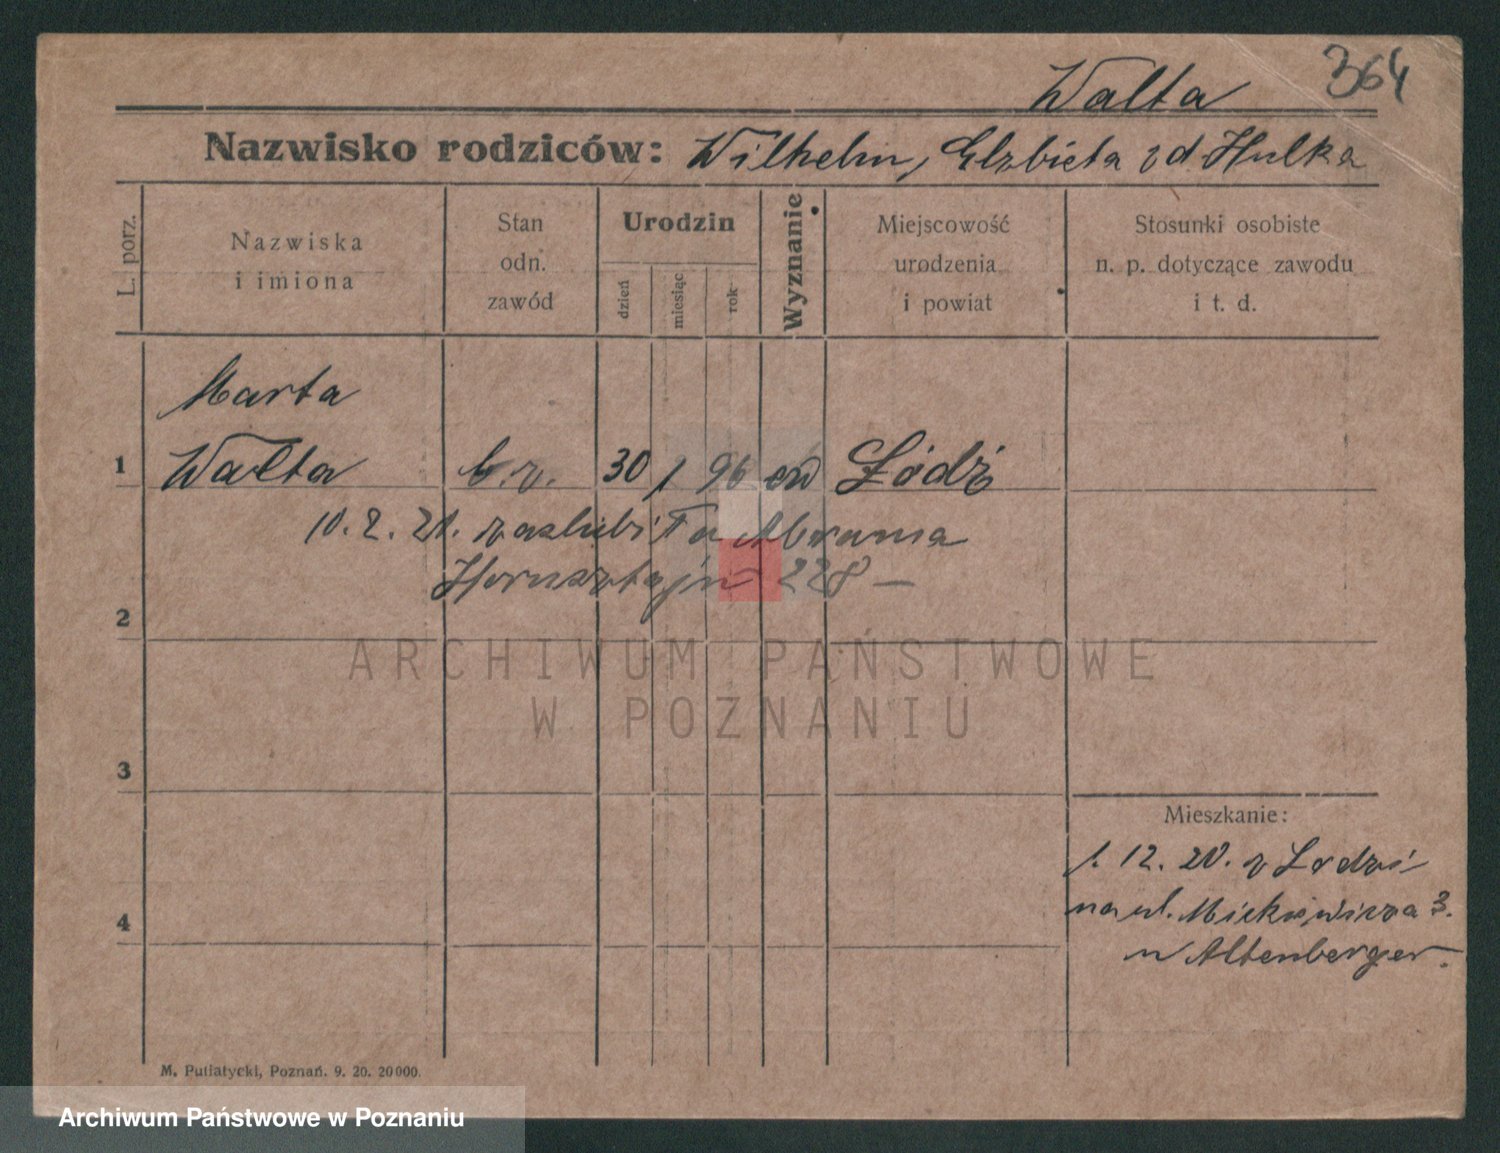 364
Walta
Nazwisko rodziców: Wilhelm, Elzbieta zd Hulka
L. porz.
Nazwiska
i imiona
Stan
odn.
zawód
Urodzin
dzień
miesiąc
rok
Wyznanie
Miejscowość
urodzenia
i powiat
Stosunki osobiste
n. p. dotyczące zawodu
i t. d.
Marta
1 Walta b. z. 30 1 96 ew Łódź
10. 2. 21. zaslubiła Abrama
Hornsztajn 228 —
2
ARCHIWUM PAŃSTWOWE
W POZNANIU
3
Mieszkanie:
1. 12. 20. z Lodzi
na ul. Mickiewicza 3.
u Altenberger.
4
M. Putiatycki, Poznań. 9. 20. 20000.
Archiwum Państwowe w Poznaniu